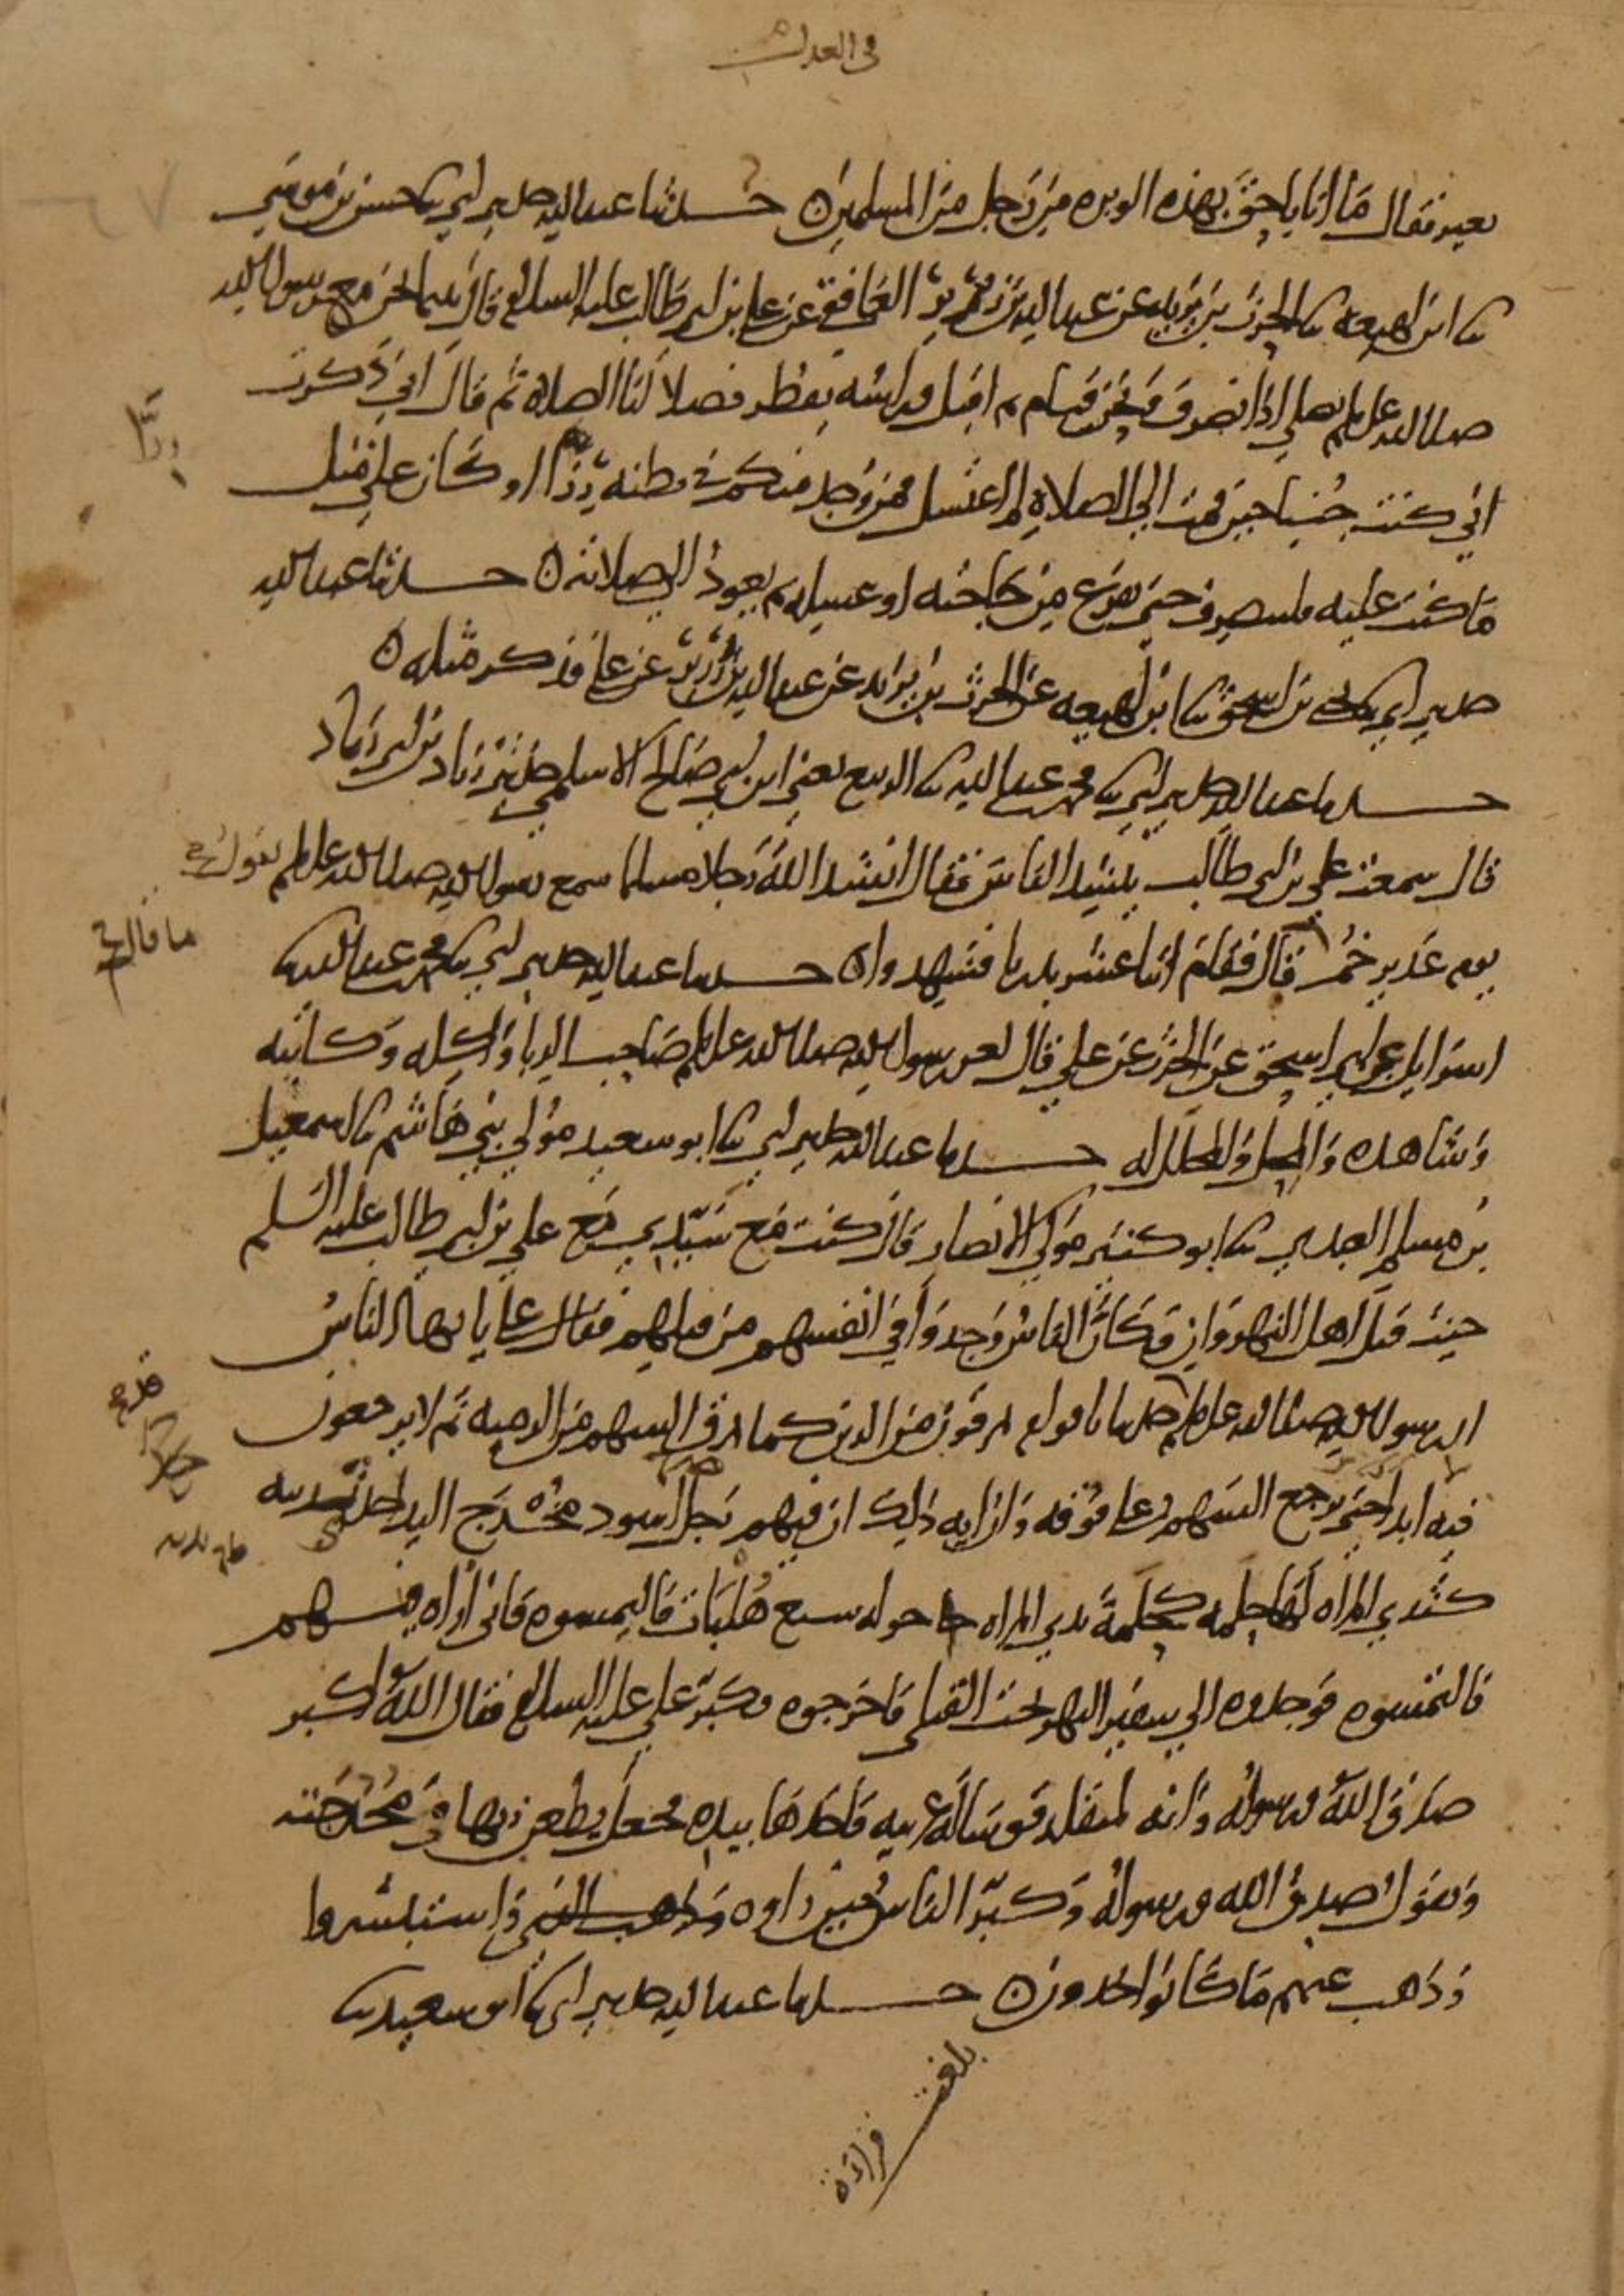 في العدل
بعير فقال ما انا باحق بهذه الوبره من رجل من المسلمين ه حدثنا عبد الله حدثني ابي ثنا حسن بن موسى
ثنا ابن لهيعه ثنا الحرث بن يزيد عن عبد الله بن زرير الغافقي عن علي بن ابي طالب عليه السلام قال بينما نحن مع رسول الله
صلى الله عليه وسلم نصلي اذ انصرف ونحن قيام ثم اقبل وراسه يقطر فصلا لنا الصلاه ثم قال اني ذكرت
رزا
اني كنت جنبا حين قمت الى الصلاة لم اغتسل فمن وجد منكم في بطنه رزا او كان على مثل
ما كنت عليه فلينصرف حتى يفرغ من حاجته او غسله ثم يعود الى صلاته ه حدثنا عبد الله
حدثني ابي ثنا يحيى بن اسحق ثنا ابن لهيعه عن الحرث بن يزيد عن عبد الله بن زرير عن علي فذكر مثله ه
حدثنا عبد الله حدثني ابي ثنا محمد بن عبد الله ثنا الربيع يعني ابن ابي صالح الاسلمي حدثني زياد بن ابي زياد
قال سمعت علي بن ابي طالب ينشد الناس فقال انشد الله رجلا مسلما سمع رسول الله صلى الله عليه وسلم يقول
ما قال
يوم غدير خم قال فقام اثنا عشر بدريا فشهدوا ه حدثنا عبد الله حدثني ابي ثنا محمد بن عبد الله ثنا
اسرايل عن ابي اسحق عن الحرث عن علي قال لعن رسول الله صلى الله عليه وسلم صاحب الربا واكله وكاتبه
وشاهده والمحل والمحلل له حدثنا عبد الله حدثني ابي ثنا ابو سعيد مولى بني هاشم ثنا اسمعيل
بن مسلم العبدي ثنا ابو كثير مولى الانصار قال كنت مع سيدي مع علي بن ابي طالب عليه السلم
حيث قتل اهل النهروان فكان الناس وجدوا في انفسهم من قتلهم فقال علي يا ايها الناس
ان رسول الله صلى الله عليه وسلم حدثنا باقوام يمرقون من الدين كما يمرق السهم من الرميه ثم لا يرجعون
فيه ابدا حتى يرجع السهم على فوقه وان ايه ذلك ان فيهم رجلا اسود مخدج اليد احدى ثدييه
كثدي المراه لها حلمه كحلمة ثدي المراه حوله سبع هلبات فالتمسوه فاني اراه فيهم
فالتمسوه فوجدوه الى شفير النهر تحت القتلى فاخرجوه فكبر علي عليه السلام فقال الله اكبر
صدق الله ورسوله وانه لمتقلد قوسا له عربيه فاخذها بيده فجعل يطعن بها في مخدجته
ويقول صدق الله ورسوله وكبر الناس حين راوه واستبشروا
وذهب عنهم ما كانوا يجدون ه حدثنا عبد الله حدثني ابي ثنا ابو سعيد ثنا
بلغت قراءة